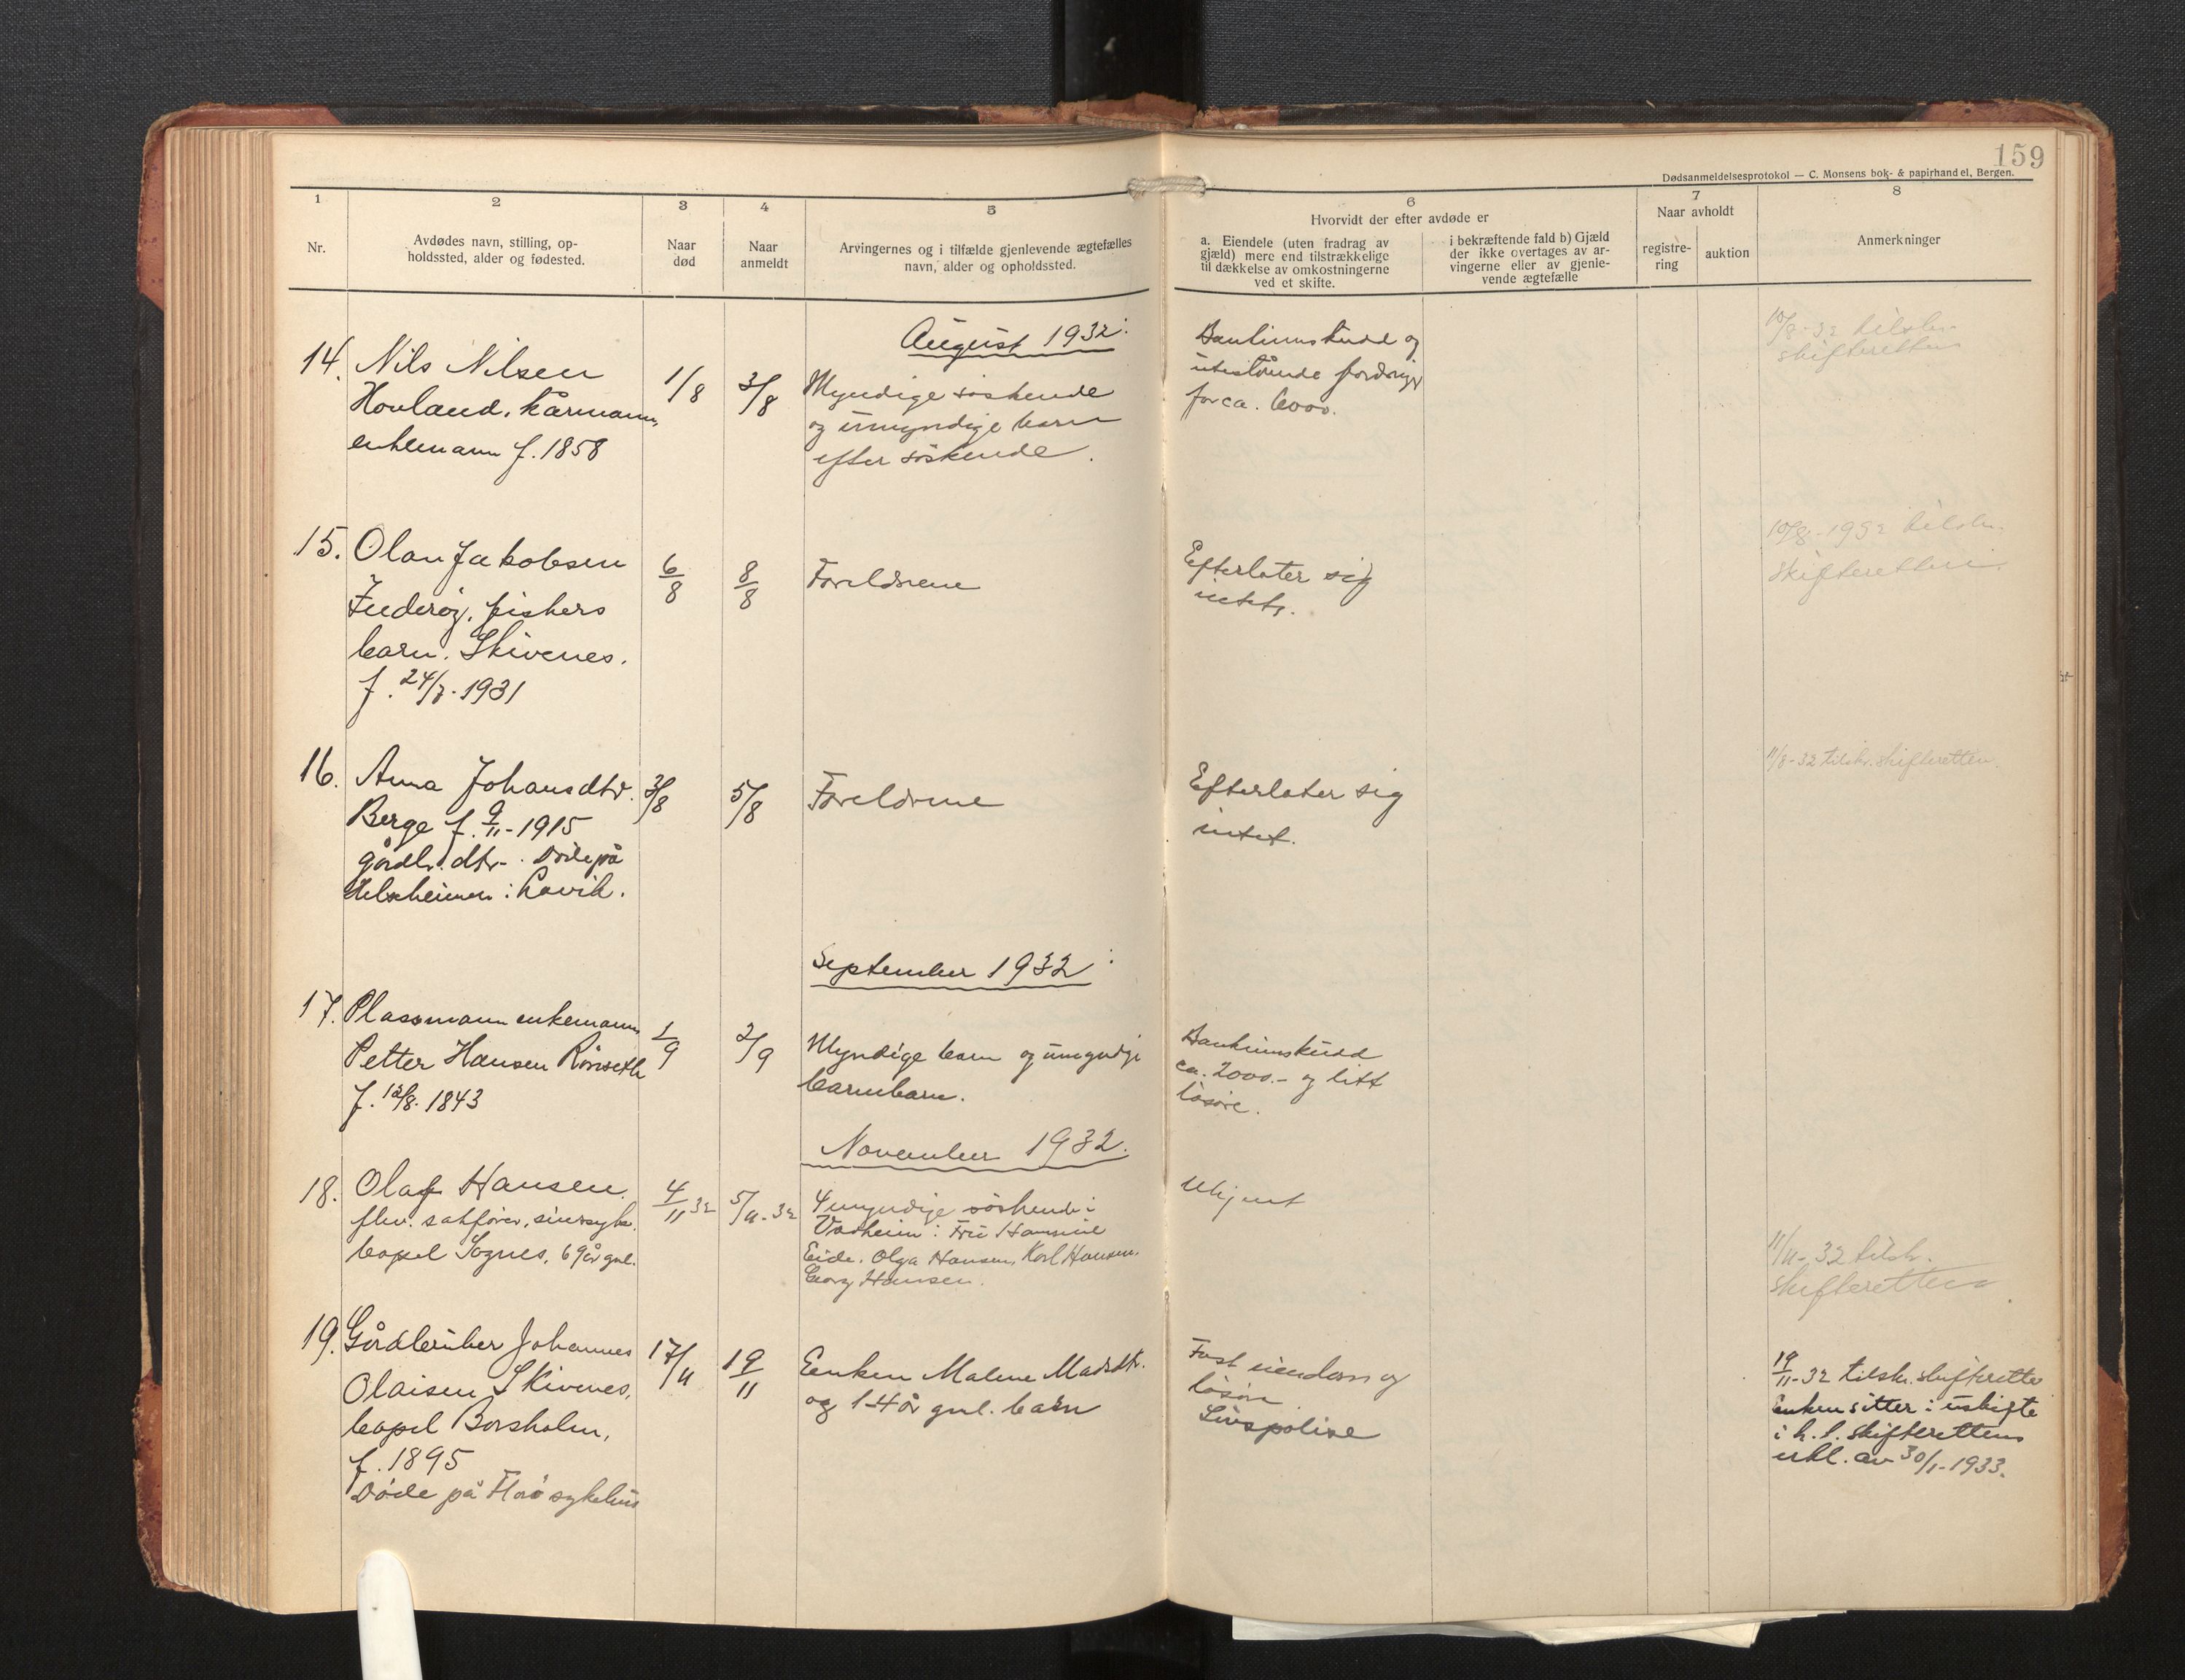 159
Dødsanmeldelsesprotokol — C. Monsens bok- & papirhandel, Bergen.
1
2
3
4
5
6
7
8
Nr.
Avdødes navn, stilling, op-
holdssted, alder og fødested.
Naar
død
Naar
anmeldt
Arvingernes og i tilfælde gjenlevende ægtefælles
navn, alder og opholdssted.
Hvorvidt der efter avdøde er
a. Eiendele (uten fradrag av
gjæld) mere end tilstrækkelige
til dækkelse av omkostningerne
ved et skifte.
i bekræftende fald b) Gjæld
der ikke overtages av ar-
vingerne eller av gjenle-
vende ægtefælle
Naar avholdt
registre-
ring
auktion
Anmerkninger
August 1932.
14. Nils Nilsen
Hovland, kårmann,
enkemann f. 1858
1/8
3/8
Myndige søskende
og umyndige barn
efter søskende.
Bankinnskudd og
utestående fordring
for ca. 6000.
10/8-32 tilskr.
skifteretten
15. Olav Jakobsen
Inderøy, fiskers
barn. Skivenes.
f. 24/7-1931
6/8
8/8
Foreldrene
Efterlater sig
intet.
10/8-1932 tilskr.
skifteretten.
16. Anna Johansdtr.
Berge f. 9/11-1915
gårdbr. dtr. Døde på
Helseheimen i Lavik.
3/8
5/8
Foreldrene
Efterlater sig
intet.
11/8-32 tilskr. skifteretten.
September 1932
17. Plassmann enkemann
Petter Hansen Rønseth
f. 12/8. 1843
1/9
2/9
Myndige barn og umyndige
barnebarn.
Bankinnskudd
ca. 2000.- og litt
løsøre.
November 1932.
18. Olaf Hansen.
fhv. sakfører, sinnsyk.
bopel Sognes, 69 år gml.
4/11 32
5/11-32
4 myndige søskende i
Vadheim: Fru Hansine
Eide. Olga Hansen, Karl Hansen,
Georg Hansen.
Ukjent
11/11-32 tilskr.
skifteretten
19. Gårdbruker Johannes
Olaisen Skivenes,
bopel Borsholm,
f. 1895
Døde på Florø sykehus
17/11
19/11
Enken Malene Madsdtr.
og 1 4 år gml. barn
Fast eiendom og
løsøre
Livspolise
19/11-32 tilskr. skifterette
Enken sitter i uskifte
i h. t. skifterettens
erkl. av 30/1-1933.